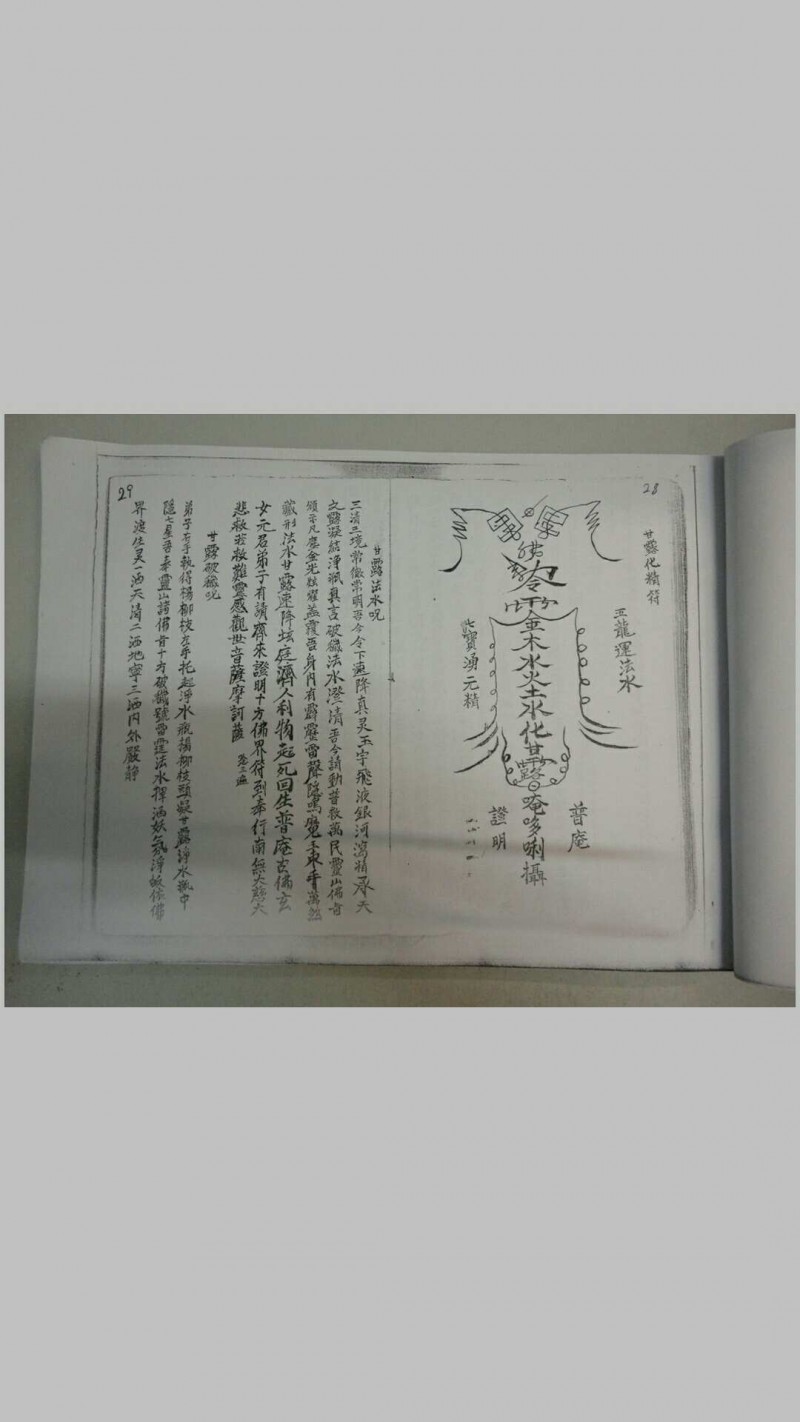 28
甘露化積符
五龍運法水
佛
金木水火土水化
甘露
唵哆唎攝
七寶湧元精
普庵
證明
29
甘露法水呪
三清三境常徹常明吾今令下速降真灵玉宇飛液銀河瀉精承天
之露凝結淨瓶真言破穢法水澄清吾今請動普救萬民靈山佛旨
頒示凡塵金光炫耀蓋覆吾身內有霹靂雷聲隱鳴魔王束手萬怨
藏形法水甘露速降坛庭濟人利物起死回生普庵古佛玄
女元君弟子有請齊來證明十方佛界符到奉行南無大慈大
悲救苦救難靈感觀世音薩摩訶薩
甘露破穢呪
弟子右手執得楊柳枝左手托起淨水瓶楊柳枝頭凝甘露淨水瓶中
隱七星吾奉靈山諸佛旨十方破穢號雷霆法水揮洒妖氛淨皈依佛
界渡生灵一洒天清二洒地寧三洒內外嚴静